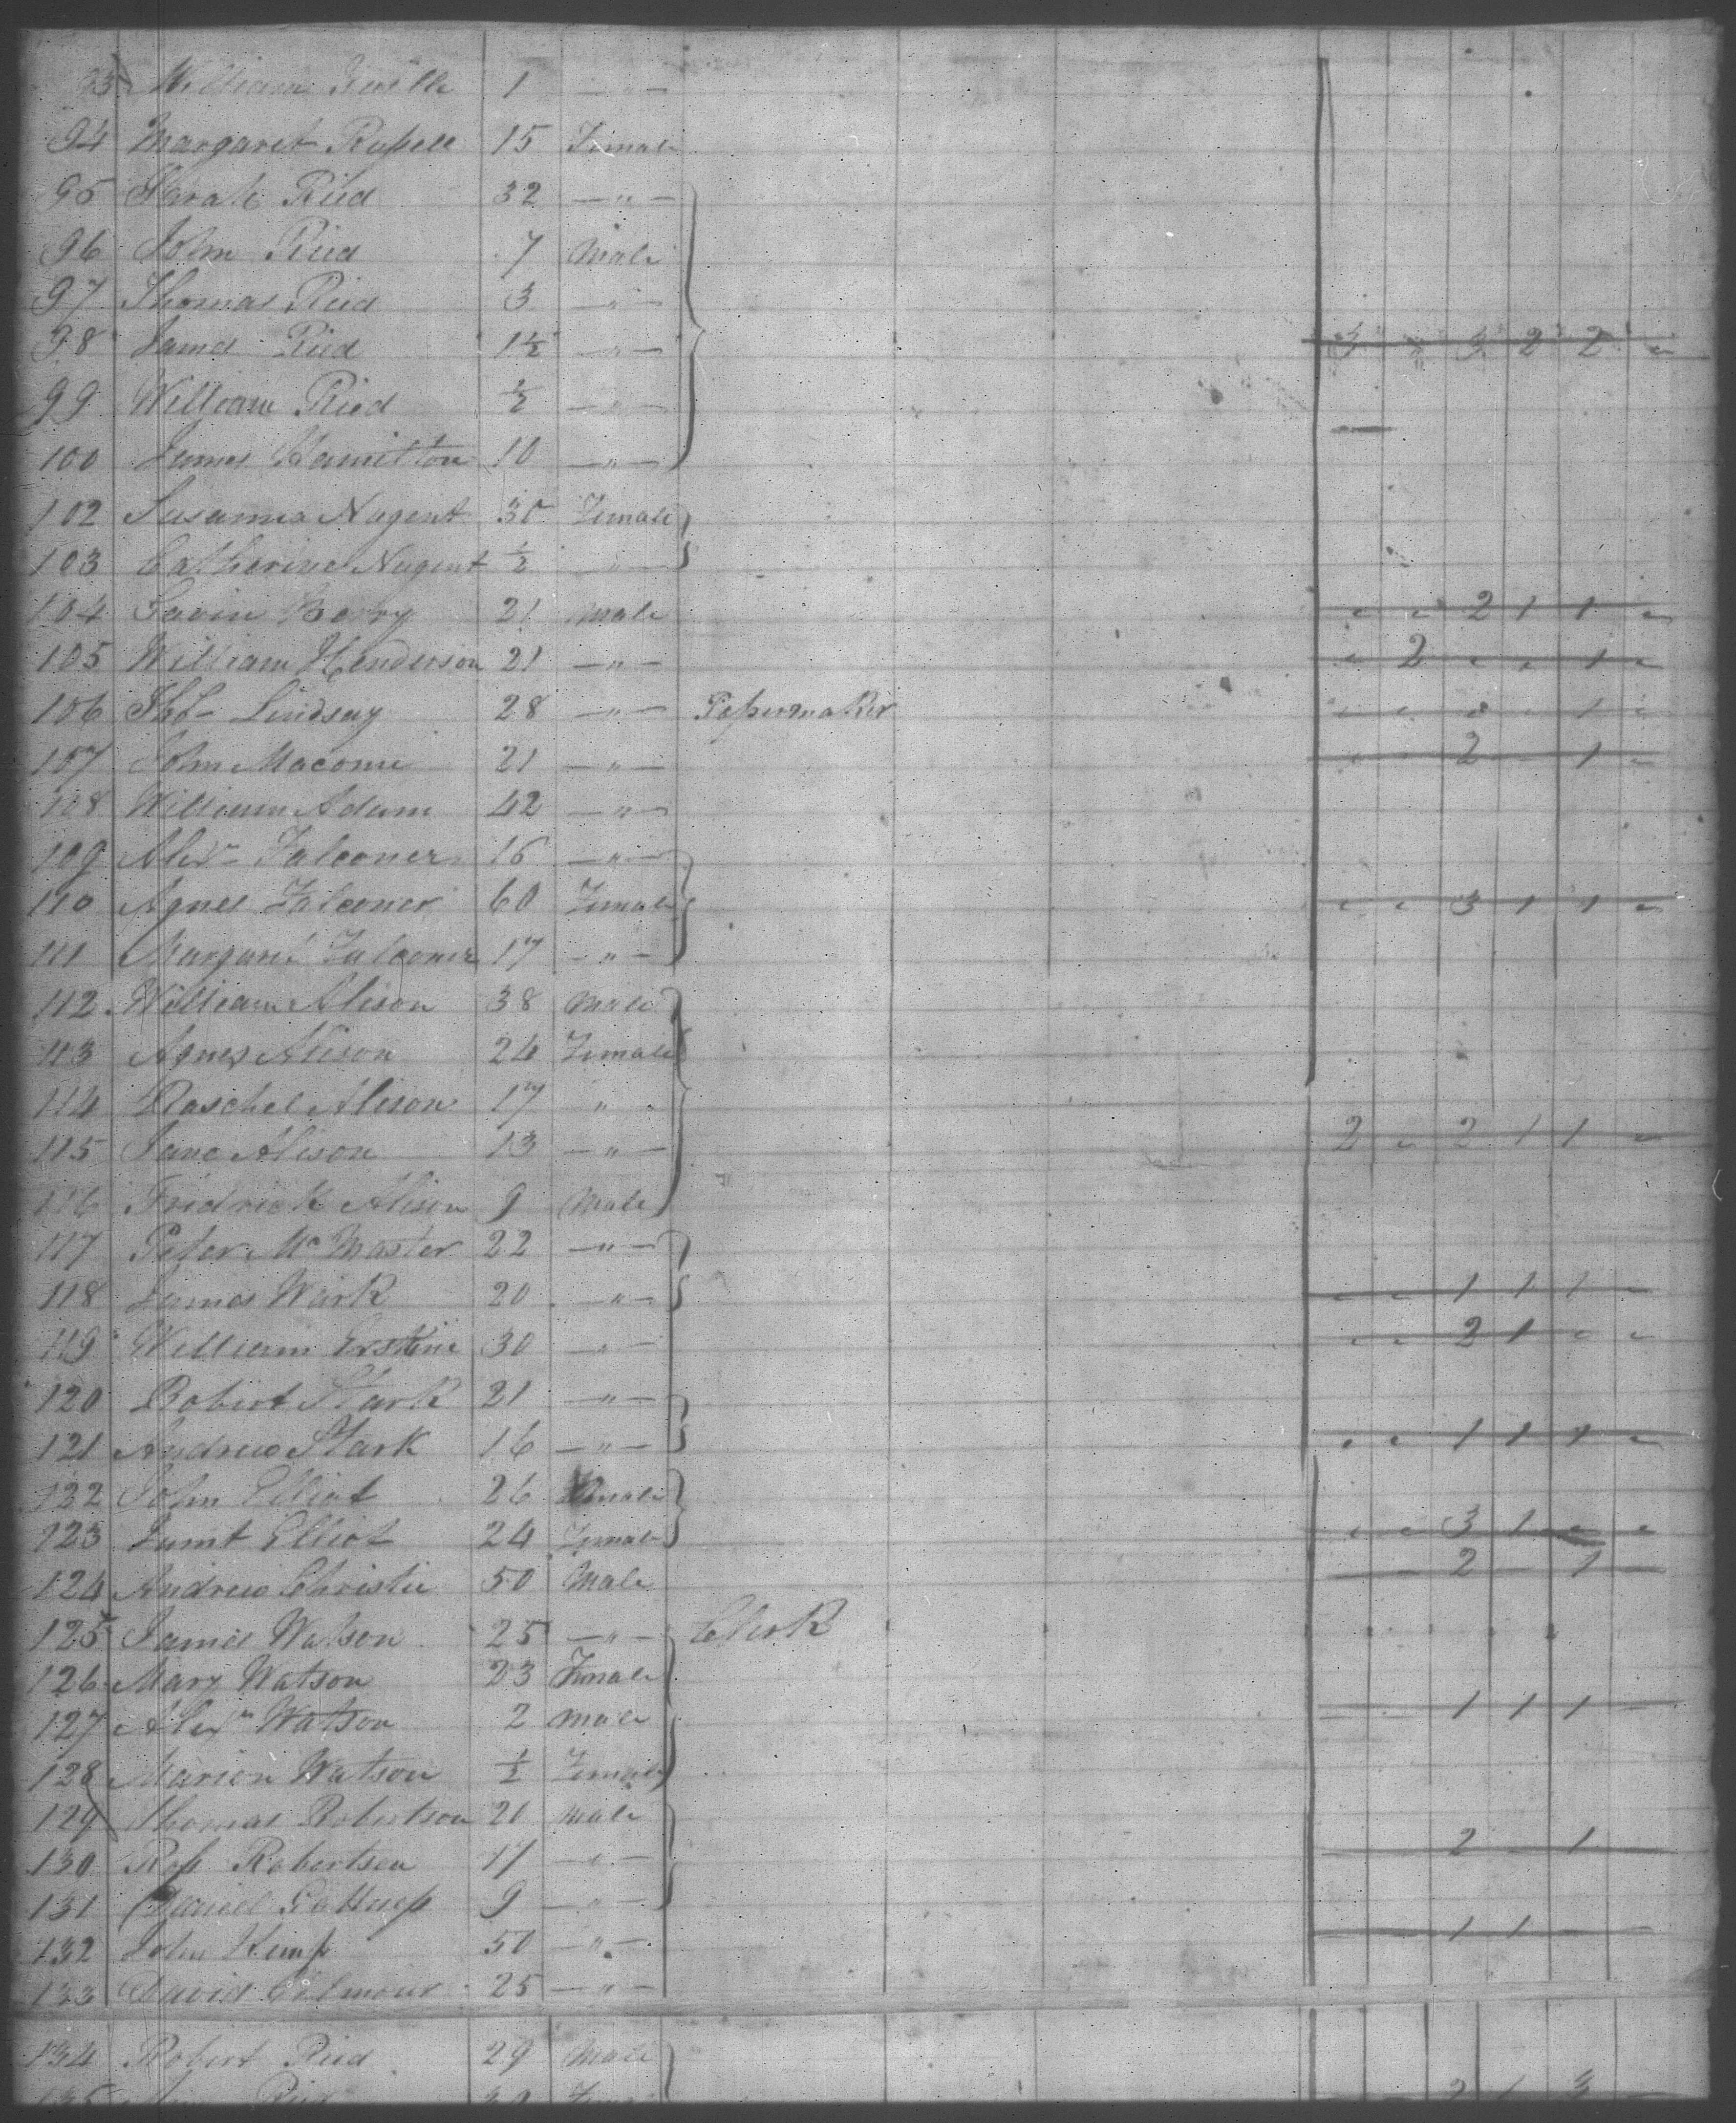 93 William 1 — " —
94 Margaret Russell 15 Female
95 Sarah Ried 32 — " —
96 John Ried 7 Male
97 Thomas Ried 3 — " —
98 James Ried 1½ — " — 3 " 3 2 2 "
99 William Ried ½ — " —
100 James Hamilton 10 — " —
102 Susanna Nugent 30 Female
103 Catherine Nugent ½ — " —
104 Gavin Berry 21 Male " " 2 1 1 "
105 William Henderson 21 — " — " 2 " " 1 "
106 Lindsay 28 — " — Papermaker " " " " 1 "
107 John Macomie 21 — " — " " 2 — 1 "
108 William Adam 42 — " —
109 Alexr Falconer 16 — " —
110 Agnes Falconer 60 Female " " 3 1 1 "
111 Margaret Falconer 17 — " —
112 William Alison 38 Male
113 Agnes Alison 24 Female
114 Raschel Alison 17 " "
115 Jane Alison 13 — " — 2 " 2 1 1 "
116 Fredrick Alison 9 Male
117 Peter Mc Master 22 — " —
118 James Wark 20 — " — " " 1 1 1 "
119 William Erskine 30 — " — " " 2 1 " "
120 Robert Stark 21 — " —
121 Andrew Stark 16 — " — " " 1 1 1 "
122 John Elliot 26 Male
123 Elliot 24 Female " " 3 1 " "
124 Andrew Christie 50 Male — — 2 — 1 —
125 James Watson 25 — " — Clerk
126 Mary Watson 23 Female
127 Alexr Watson 2 Male — — 1 1 1 —
128 Marion Watson ½ Female
129 Thomas Robertson 21 Male
130 Ross Robertson 17 — " — — — 2 — 1 —
131 Daniel 9 — " —
132 John Kemp 50 — " — — — 1 1 — —
133 David Gilmour 25 — " —
134 Robert Ried 29 Male
135 Ried 30 Female — — 2 1 3 —